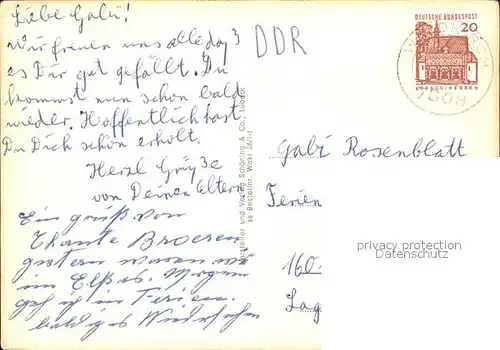 Liebe Gabi!
Wir freuen uns alle daß
es Dir gut gefällt. Du
kommst nun schon bald
wieder. Hoffentlich hast
Du Dich schön erholt.
Herzl Grüße
von Deinen Eltern
Ein gruß von
Thante Broeren
gestern waren wir
im Elßas. Morgen
geh ich in Ferien.
bald iges Wiedersehen
DDR
Hersteller und Verlag Schöning & Co., Lübeck
Bestellnr. Waki 26/1
DEUTSCHE BUNDESPOST
20
LORSCH/HESSEN
Gabi Rosenblatt
Ferien
160
Lag
privacy protection
Datenschutz